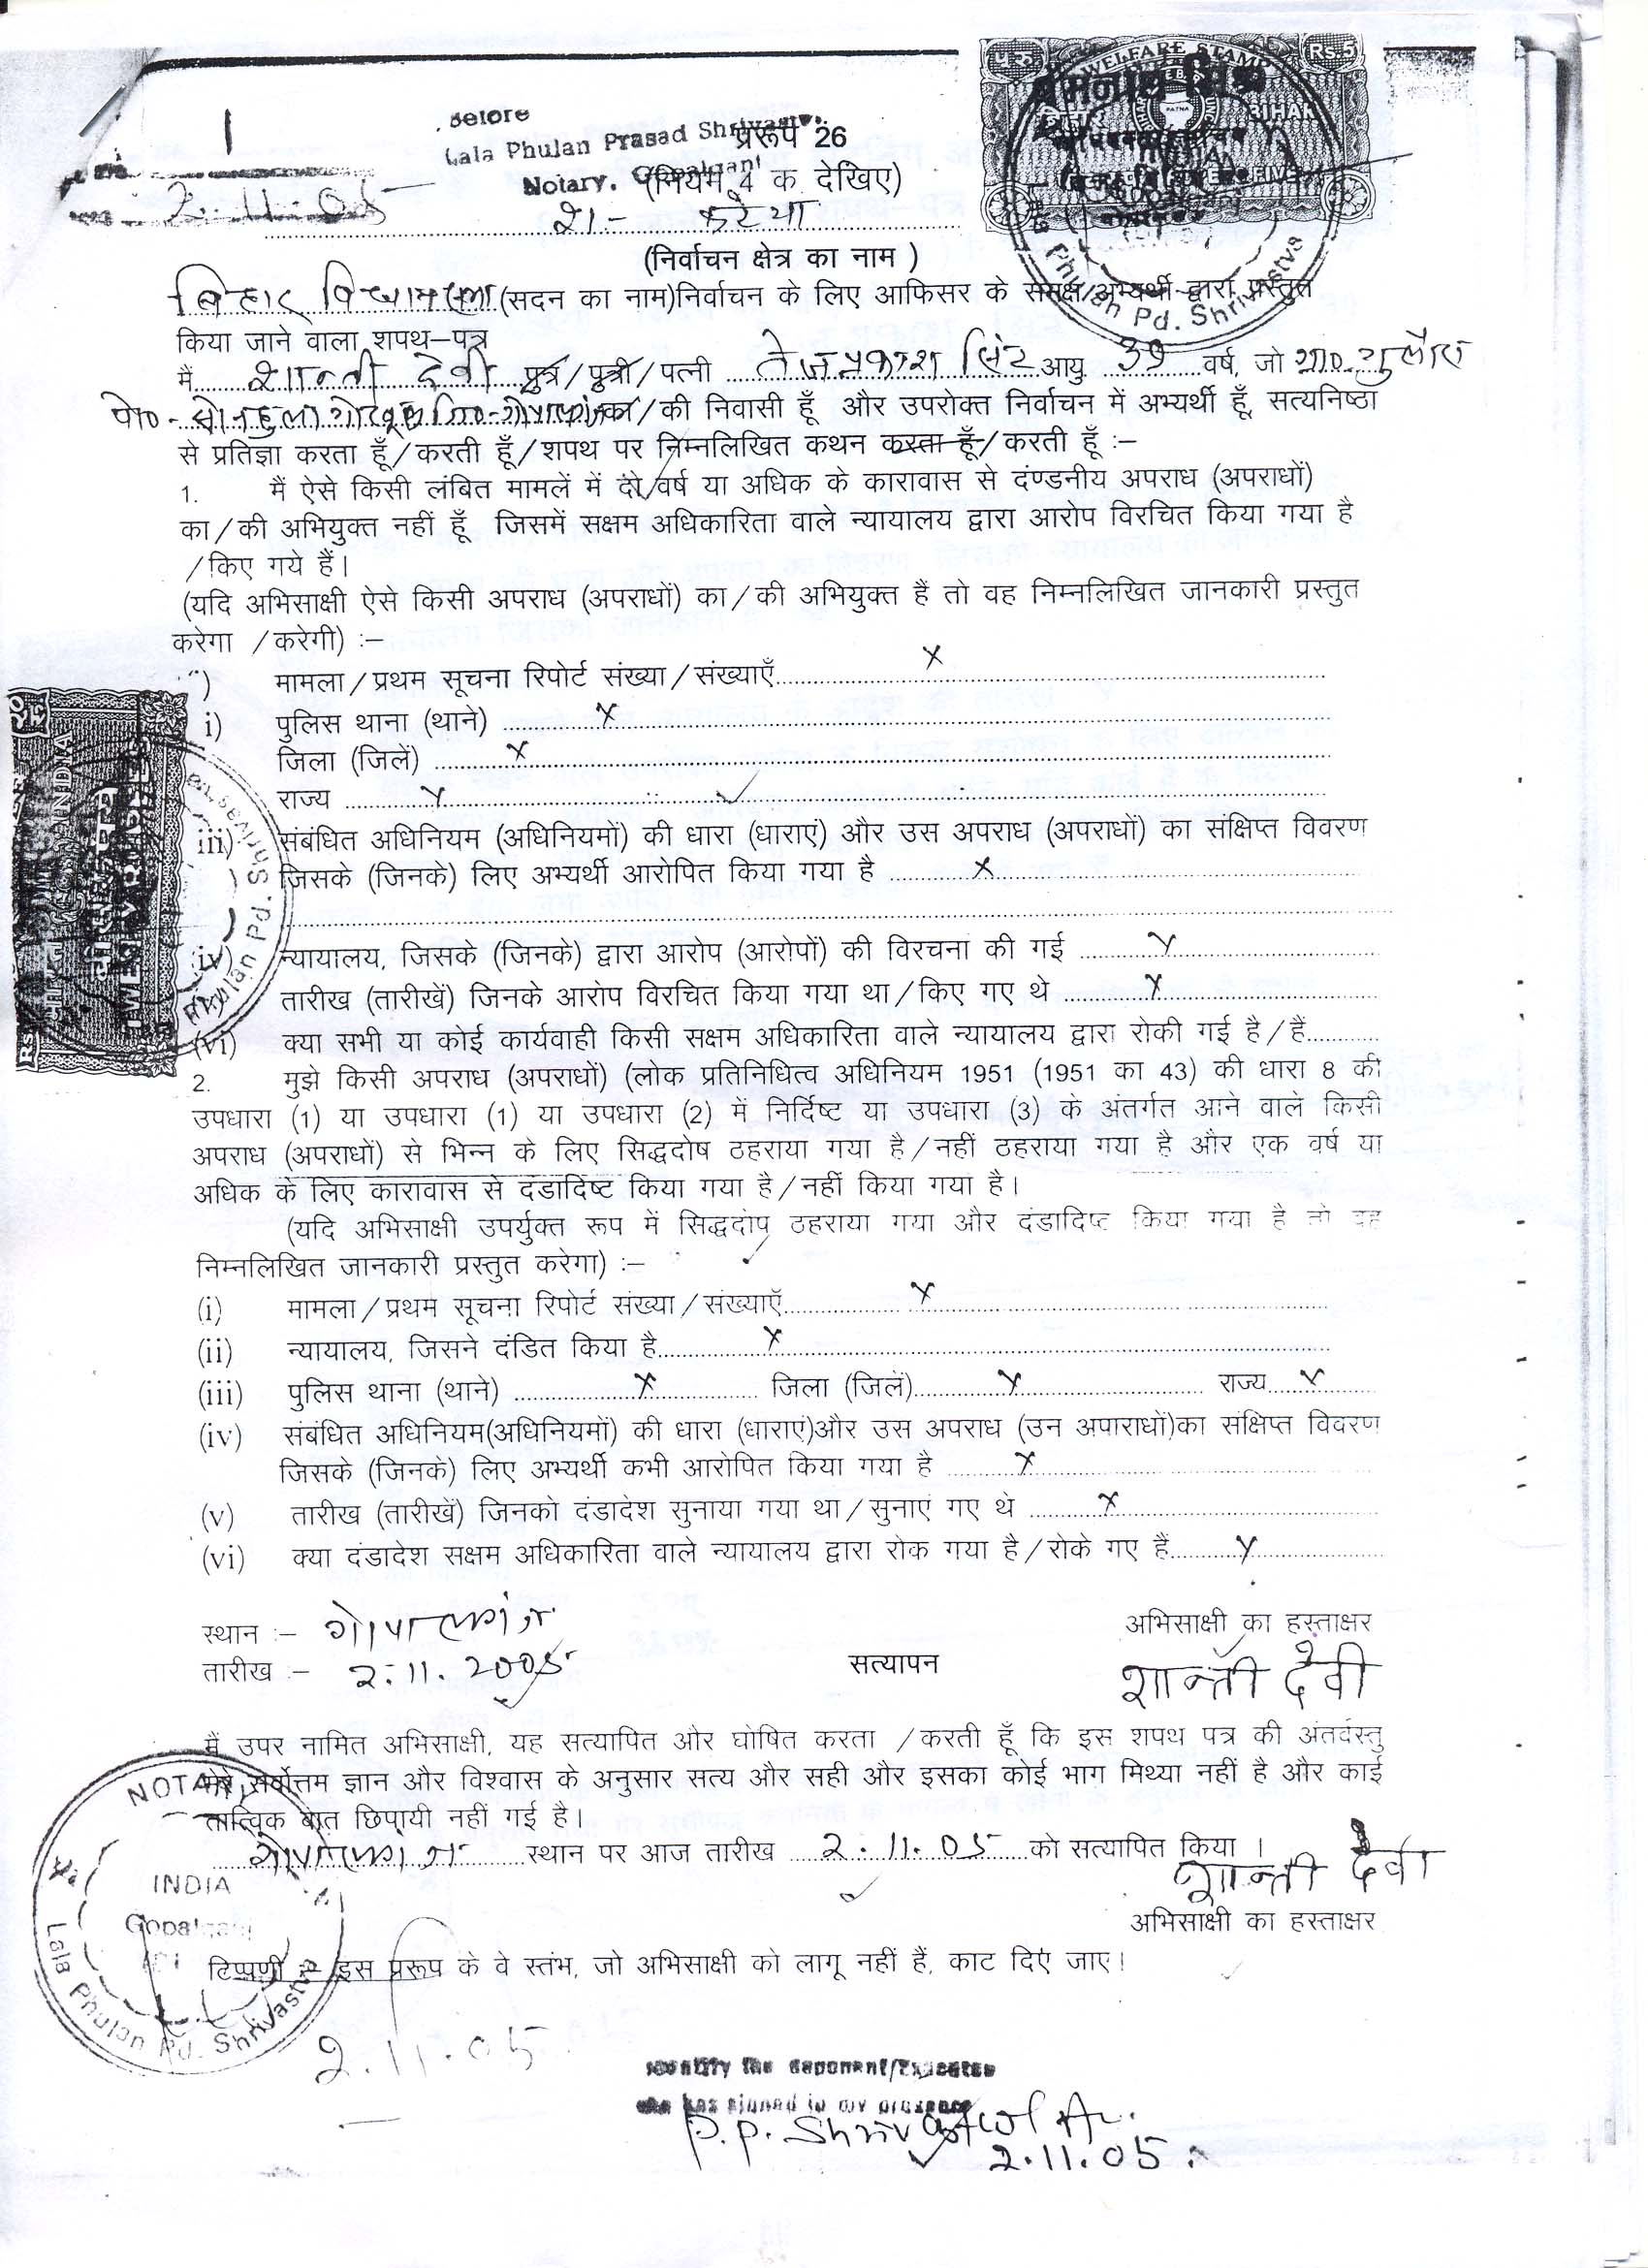 Before
Lala Phulan Prasad Shrivastva
Notary, Gopalganj
प्ररूप 26
(नियम 4 क देखिए)
2.11.05
(निर्वाचन क्षेत्र का नाम )
बिहार विधानसभा (सदन का नाम)निर्वाचन के लिए आफिसर के समक्ष अभ्यर्थी द्वारा प्रस्तुत
किया जाने वाला शपथ-पत्र
मैं शान्ती देवी पुत्र/पुत्री/पत्नी तेजप्रकाश सिंह आयु 39 वर्ष, जो
का/की निवासी हूँ और उपरोक्त निर्वाचन में अभ्यर्थी हूँ, सत्यनिष्ठा
से प्रतिज्ञा करता हूँ/करती हूँ/शपथ पर निम्नलिखित कथन करता हूँ/करती हूँ :-
1. मैं ऐसे किसी लंबित मामलें में दो वर्ष या अधिक के कारावास से दंण्डनीय अपराध (अपराधों)
का/की अभियुक्त नहीं हूँ जिसमें सक्षम अधिकारिता वाले न्यायालय द्वारा आरोप विरचित किया गया है
/किए गये हैं।
(यदि अभिसाक्षी ऐसे किसी अपराध (अपराधों) का/की अभियुक्त हैं तो वह निम्नलिखित जानकारी प्रस्तुत
करेगा /करेगी) :-
) मामला/प्रथम सूचना रिपोर्ट संख्या/संख्याएँ X
i) पुलिस थाना (थाने) X
जिला (जिलें) X
राज्य X
iii) संबंधित अधिनियम (अधिनियमों) की धारा (धाराएं) और उस अपराध (अपराधों) का संक्षिप्त विवरण
जिसके (जिनके) लिए अभ्यर्थी आरोपित किया गया है X
iv) न्यायालय, जिसके (जिनके) द्वारा आरोप (आरोपों) की विरचना की गई X
तारीख (तारीखें) जिनके आरोप विरचित किया गया था/किए गए थे X
(vi) क्या सभी या कोई कार्यवाही किसी सक्षम अधिकारिता वाले न्यायालय द्वारा रोकी गई है/हैं
2. मुझे किसी अपराध (अपराधों) (लोक प्रतिनिधित्व अधिनियम 1951 (1951 का 43) की धारा 8 की
उपधारा (1) या उपधारा (1) या उपधारा (2) में निर्दिष्ट या उपधारा (3) के अंतर्गत आने वाले किसी
अपराध (अपराधों) से भिन्न के लिए सिद्धदोष ठहराया गया है/नहीं ठहराया गया है और एक वर्ष या
अधिक के लिए कारावास से दंडादिष्ट किया गया है/नहीं किया गया है।
(यदि अभिसाक्षी उपर्युक्त रूप में सिद्धदोष ठहराया गया और दंडादिष्ट किया गया है तो वह
निम्नलिखित जानकारी प्रस्तुत करेगा) :-
(i) मामला/प्रथम सूचना रिपोर्ट संख्या/संख्याएँ X
(ii) न्यायालय, जिसने दंडित किया है X
(iii) पुलिस थाना (थाने) X जिला (जिलें) X राज्य X
(iv) संबंधित अधिनियम(अधिनियमों) की धारा (धाराएं)और उस अपराध (उन अपाराधों)का संक्षिप्त विवरण
जिसके (जिनके) लिए अभ्यर्थी कभी आरोपित किया गया है X
(v) तारीख (तारीखें) जिनको दंडादेश सुनाया गया था/सुनाएं गए थे X
(vi) क्या दंडादेश सक्षम अधिकारिता वाले न्यायालय द्वारा रोक गया है/रोके गए हैं X
स्थान :- गोपालगंज
अभिसाक्षी का हस्ताक्षर
तारीख :- 2.11.2005
सत्यापन
शान्ती देवी
मैं उपर नामित अभिसाक्षी, यह सत्यापित और घोषित करता /करती हूँ कि इस शपथ पत्र की अंतर्वस्तु
मेरे सर्वोत्तम ज्ञान और विश्वास के अनुसार सत्य और सही और इसका कोई भाग मिथ्या नहीं है और काई
तात्विक बात छिपायी नहीं गई है।
गोपालगंज स्थान पर आज तारीख 2.11.05 को सत्यापित किया ।
शान्ती देवी
अभिसाक्षी का हस्ताक्षर
टिप्पणी :- इस प्ररूप के वे स्तंभ, जो अभिसाक्षी को लागू नहीं हैं, काट दिए जाए।
NOTARY
INDIA
Gopalganj
Lala Phulan Pd. Shrivastva
2.11.05
Identify the deponent/Executee
who has signed in my presence
P.P. Shrivastva Av.
2.11.05
WELFARE STAMP
Rs 5
बिहार BIHAR
Phulan Pd. Shrivastva
INDIA
TWENTY RUPEES